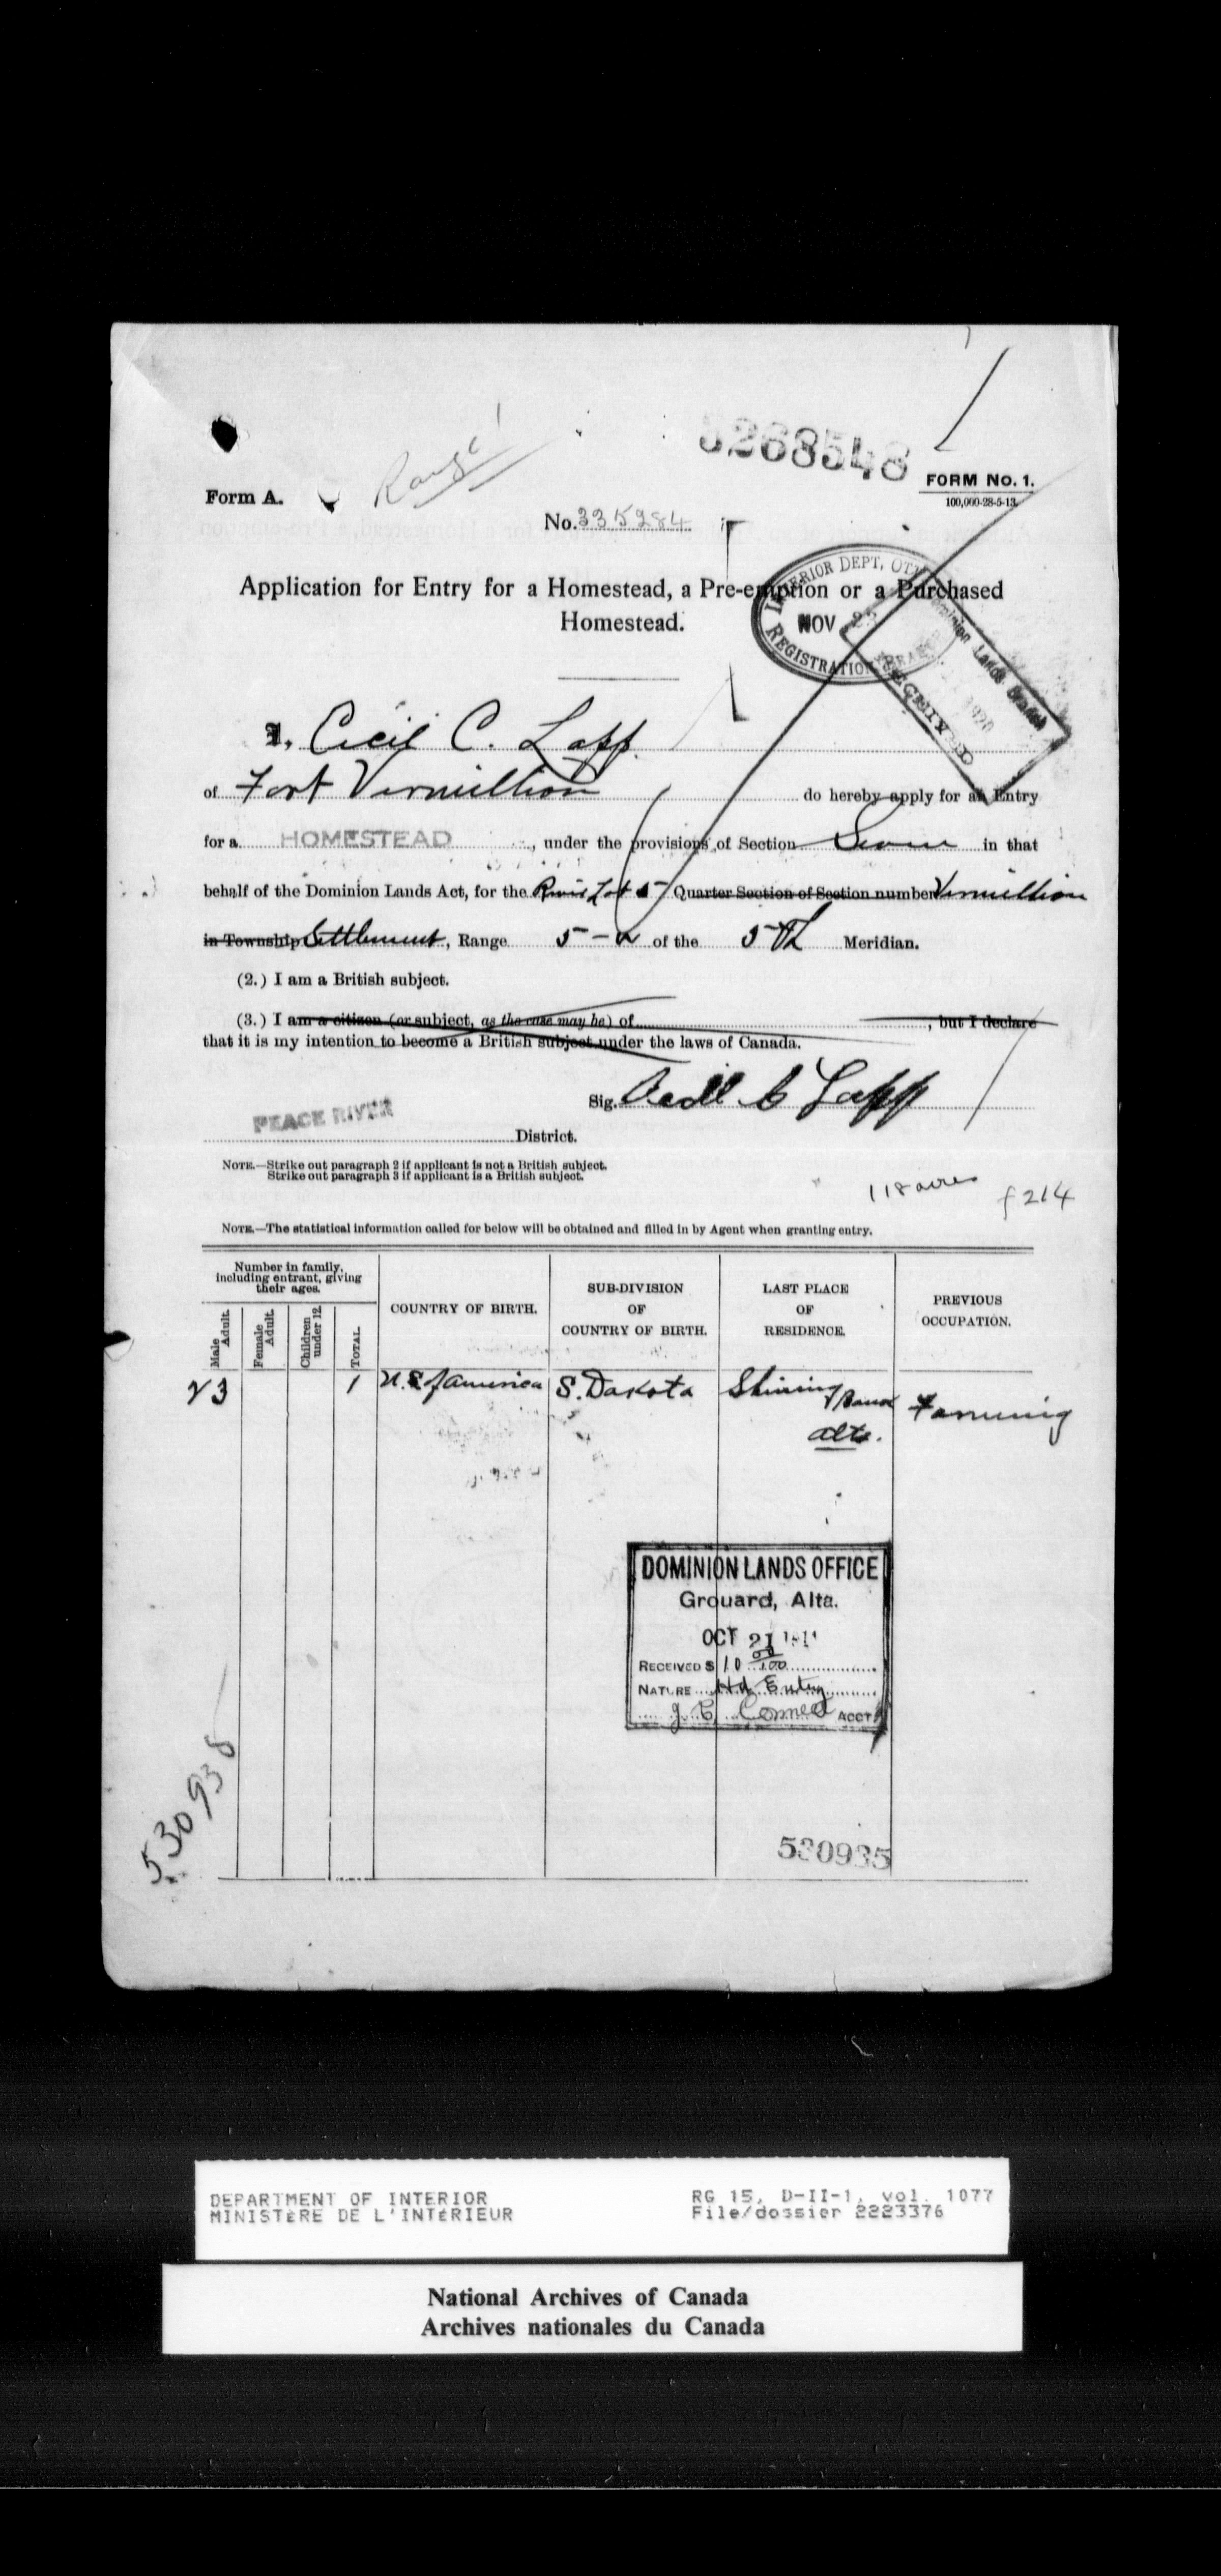 Range
5268548
Form A.
FORM NO. 1.
100,000-28-5-13.
No. 335284
INTERIOR DEPT, OTT
NOV 23
REGISTRATION BRANCH
Dominion Lands Branch
1920
RECEIVED
Application for Entry for a Homestead, a Pre-emption or a Purchased
Homestead.
I, Cecil C. Lapp
of Fort Vermillion do hereby apply for an Entry
for a HOMESTEAD, under the provisions of Section Seven in that
behalf of the Dominion Lands Act, for the River Lot 5 Quarter Section of Section number Vermillion
in Township Settlement, Range 5 - W of the 5th Meridian.
(2.) I am a British subject.
(3.) I am a citizen (or subject, as the case may be) of , but I declare
that it is my intention to become a British subject under the laws of Canada.
Sig. Cecil C Lapp
PEACE RIVER
District.
NOTE.—Strike out paragraph 2 if applicant is not a British subject.
Strike out paragraph 3 if applicant is a British subject.
118 acres
f 214
NOTE.—The statistical information called for below will be obtained and filled in by Agent when granting entry.
Number in family, including entrant, giving their ages.
Male Adult.
Female Adult.
Children under 12.
TOTAL.
COUNTRY OF BIRTH.
SUB-DIVISION OF COUNTRY OF BIRTH.
LAST PLACE OF RESIDENCE.
PREVIOUS OCCUPATION.
23 1 U.S. of America S. Dakota Shining Bank Farming
Alta.
DOMINION LANDS OFFICE
Grouard, Alta.
OCT 21
RECEIVED $ 10 00/100
NATURE Hd Entry
ACCT
530938
530935
DEPARTMENT OF INTERIOR
MINISTÈRE DE L'INTÉRIEUR
RG 15, D-II-1, vol. 1077
File/dossier 2223376
National Archives of Canada
Archives nationales du Canada